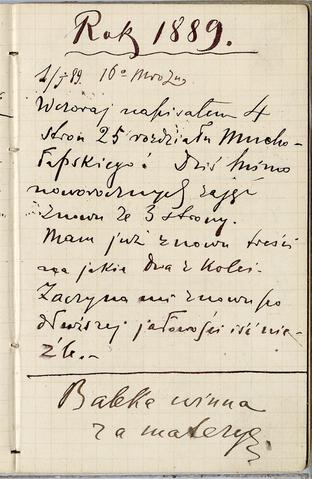 Rok 1889.
1/I 89 16° Mrozu
Wczoraj napisałem 4
stron 25 rozdziału Mucho-
łapskiego! Dziś mimo
noworocznych zajęć
znowu ze 3 strony.
Mam już znowu treści
na jakie dwa z kolei.
Zaczyna mi znowu po
dłuższej jałowości iść nie-
źle.-
Babka winna
za materyę